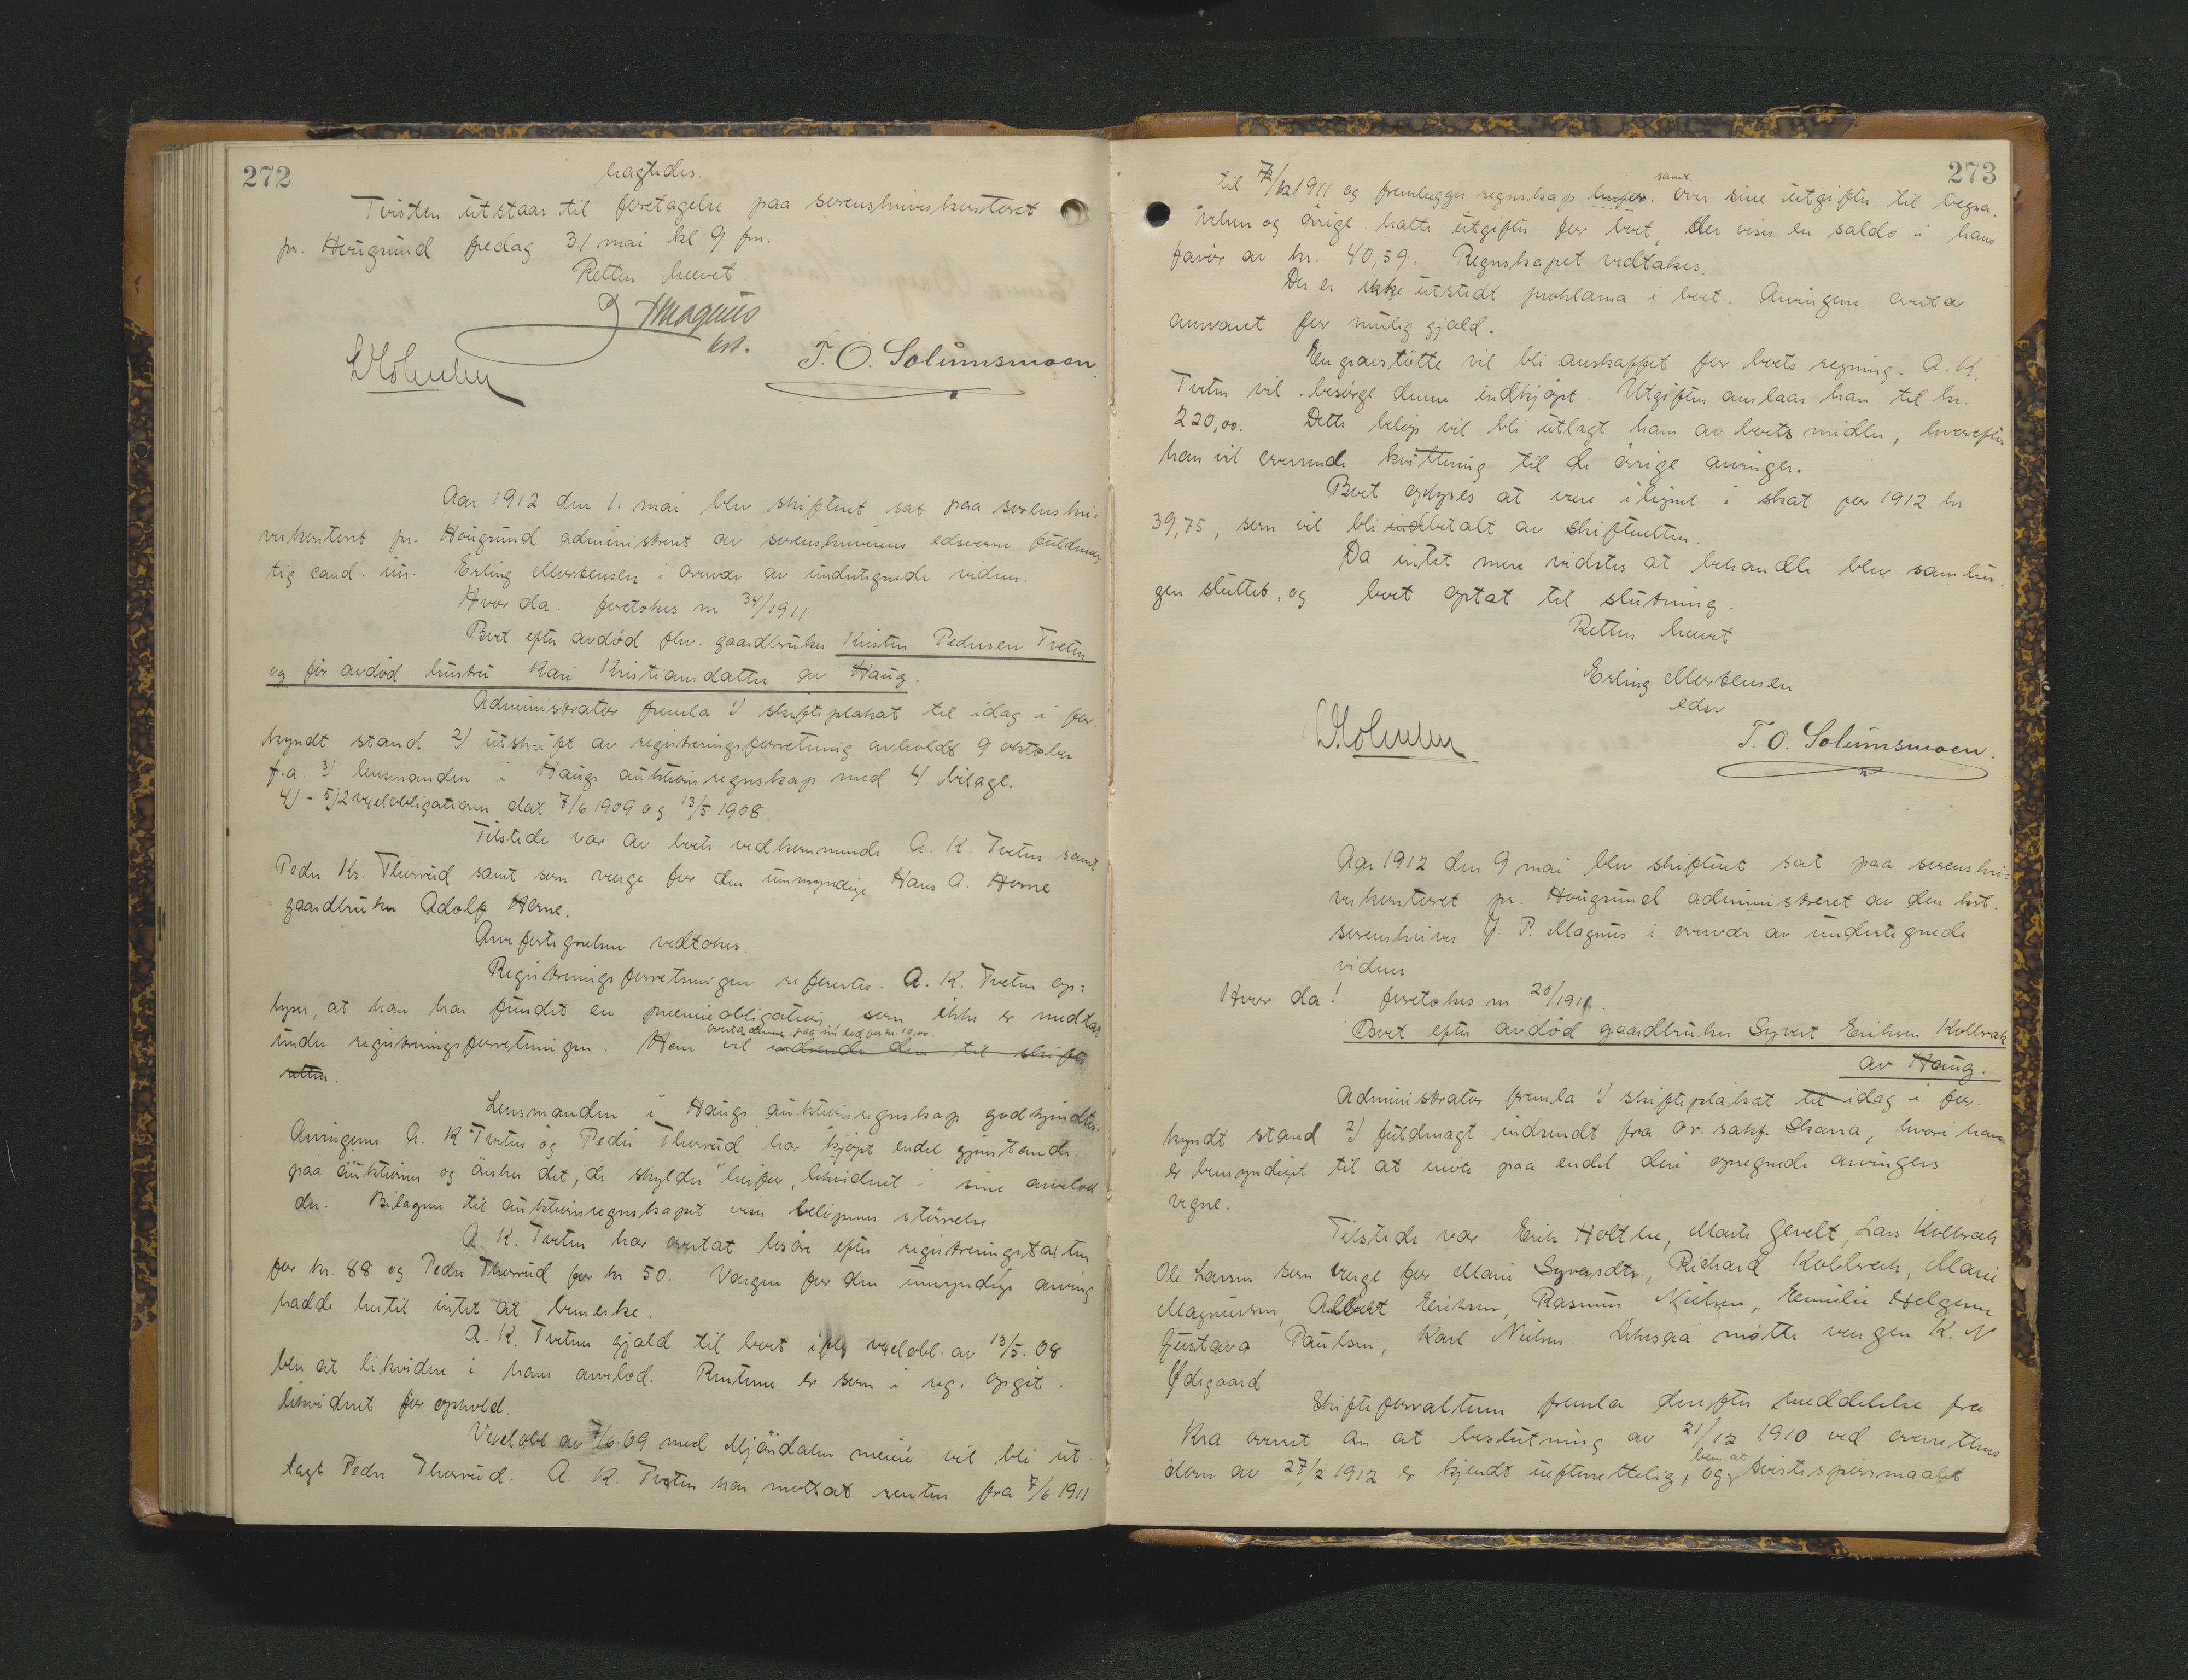 272
ragtedes.
Tvisten utstaar til foretagelse paa sorenskriverkontoret
pr. Hougsund fredag 31 mai kl 9 fm.
Retten hævet.
Magnus
kst.
T. O. Solumsmoen.
Aar 1912 den 1. mai blev skifteret sat paa sorenskri-
verkontoret pr. Hougsund administreret av sorenskriverens edsvorne fuldmæg
tig cand. jur. Erling Mortensen i overvær av undertegnede vidner.
Hvor da. foretokes nr 34/1911
Boet efter avdød fhv. gaardbruker Kristen Pedersen Tveten
og før avdød hustru Kari Kristiansdatter av Haug.
Administrator fremla 1) skifteplakat til idag i for-
kyndt stand 2) utskrift av registreringsforretning avholdt 9 oktober
f.a. 3) lensmanden i Haugs auktionsregnskap med 4 bilage.
4) - 5) 2 vexelobligationer dat 7/6 1909 og 13/5 1908.
Tilstede var av boets vedkommende A. K. Tveten samt
Peder Kr. Thorrud samt som verge for den umyndige Hans A. Horne
gaardbruker Adolf Horne.
Arvefortegnelsen vedtokes.
Registreringsforretningen refertes. A. K. Tveten op=
lyser, at han har fundet en præmieobligation som ikke er medtat
overta denne paa sin lod for kr. 10,00.
under registreringsforretningen. Han vil indsende den til skifte
retten.
Lensmanden i Haugs auktionsregnskap godkjendtes.
Arvingerne A. K Tveten og Peder Thorrud har kjøpt endel gjenstande
paa auktionen og ønsker det, de skylder herfor, likvidert i sine arvelod
der. Bilagene til auktionsregnskapet viser beløpenes størrelse
A. K. Tveten har overtat løsøre efter registreringstaxten
for kr. 88 og Peder Thorrud for kr 50. Vergen for den umyndige arving
hadde hertil intet at bemerke.
A. K. Tvetens gjæld til boet ifølg vexelobl. av 13/5. 08
blir at likvidere i hans arvelod. Renterne er som i reg. opgit
likvidert for ophold.
Vexelobl av 7/6. 09 med Mjøndalen meieri vil bli ut-
lagt Peder Thorrud. A. K. Tveten har mottat renten fra 7/6 1911
273
til 7/12 1911 og fremlægger regnskap herfor samt over sine utgifter til begra-
velsen og øvrige hatte utgifter for boet, der viser en saldo i hans
favør av kr. 40,59. Regnskapet vedtakes.
Der er ikke utstedt proklama i boet. Arvingerne overtar
ansvaret for mulig gjæld.
En gravstøtte vil bli anskaffet for boets regning. A. K.
Tveten vil besørge denne indkjøpt. Utgiften anslaar han til kr.
220,00. Dette beløp vil bli utlagt ham av boets midler, hvorefter
han vil oversende kvittering til de øvrige arvinger.
Boet oplyses at være ilignet i skat for 1912 kr
39,75, som vil bli indbetalt av skifteretten.
Da intet mere vidstes at behandle blev samlin-
gen sluttet, og boet optat til slutning.
Retten hævet
Erling Mortensen
edsv
T. O. Solumsmoen.
Aar 1912 den 9 mai blev skifteret sat paa sorenskri=
verkontoret pr. Hougsund administreret av den kst.
sorenskriver J. P. Magnus i overvær av undertegnede
vidner
Hvor da! foretokes nr 20/1911.
Boet efter avdød gaardbruker Syvert Eriksen Kolbræk
av Haug.
Administrator fremla 1) skifteplakat til idag i for-
kyndt stand 2) fuldmagt indsendt fra or. sakf. Skarra, hvori han
er bemyndiget til at møte paa endel deri opregnede arvingers
vegne.
Tilstede var Erik Holtke, Marte Gevelt, Lars Kolbræk
Ole Larsen som verge for Marie Syversdtr, Richard Kolbræk, Marie
Magnussen, Albert Eriksen, Rasmus Nielsen, Emilie Helgesen
Gustava Paulsen, Karl Nielsen. Likesaa møtte vergen K. N
Ødegaard
Skifteforvalteren fremla derefter meddelelse fra
Kra overret om at beslutning av 21/12 1910 ved overrettens
dom av 27/2 1912 er kjendt uefterrettelig, og bem. at tvistespørsmaalet